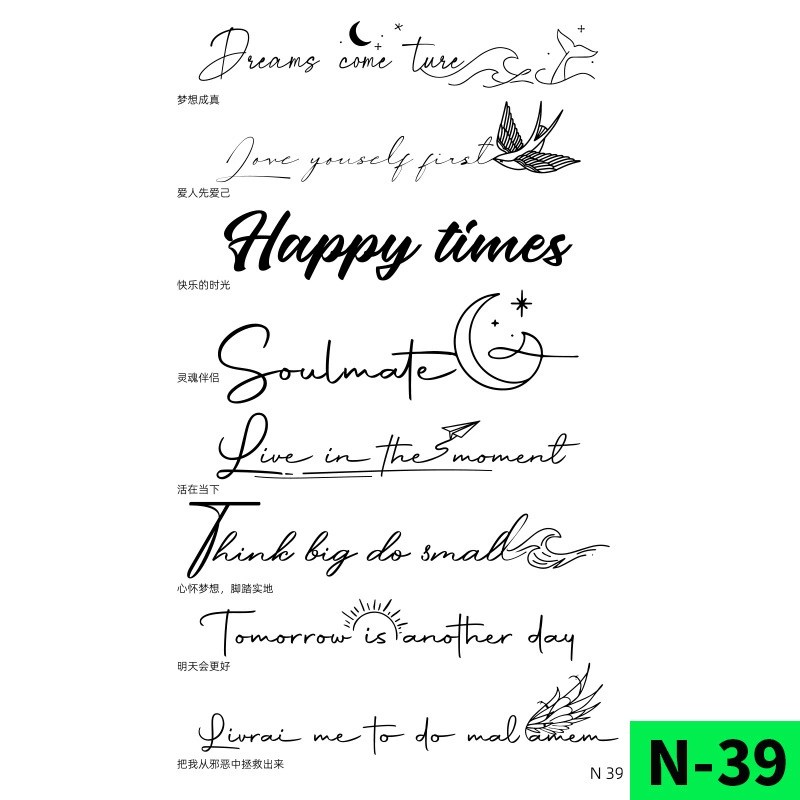 Dreams come ture
梦想成真
Love youself first
爱人先爱己
Happy times
快乐的时光
Soulmate
灵魂伴侣
Live in the moment
活在当下
Think big do small
心怀梦想，脚踏实地
Tomorrow is another day
明天会更好
Livrai me to do mal amem
把我从邪恶中拯救出来
N 39
N-39